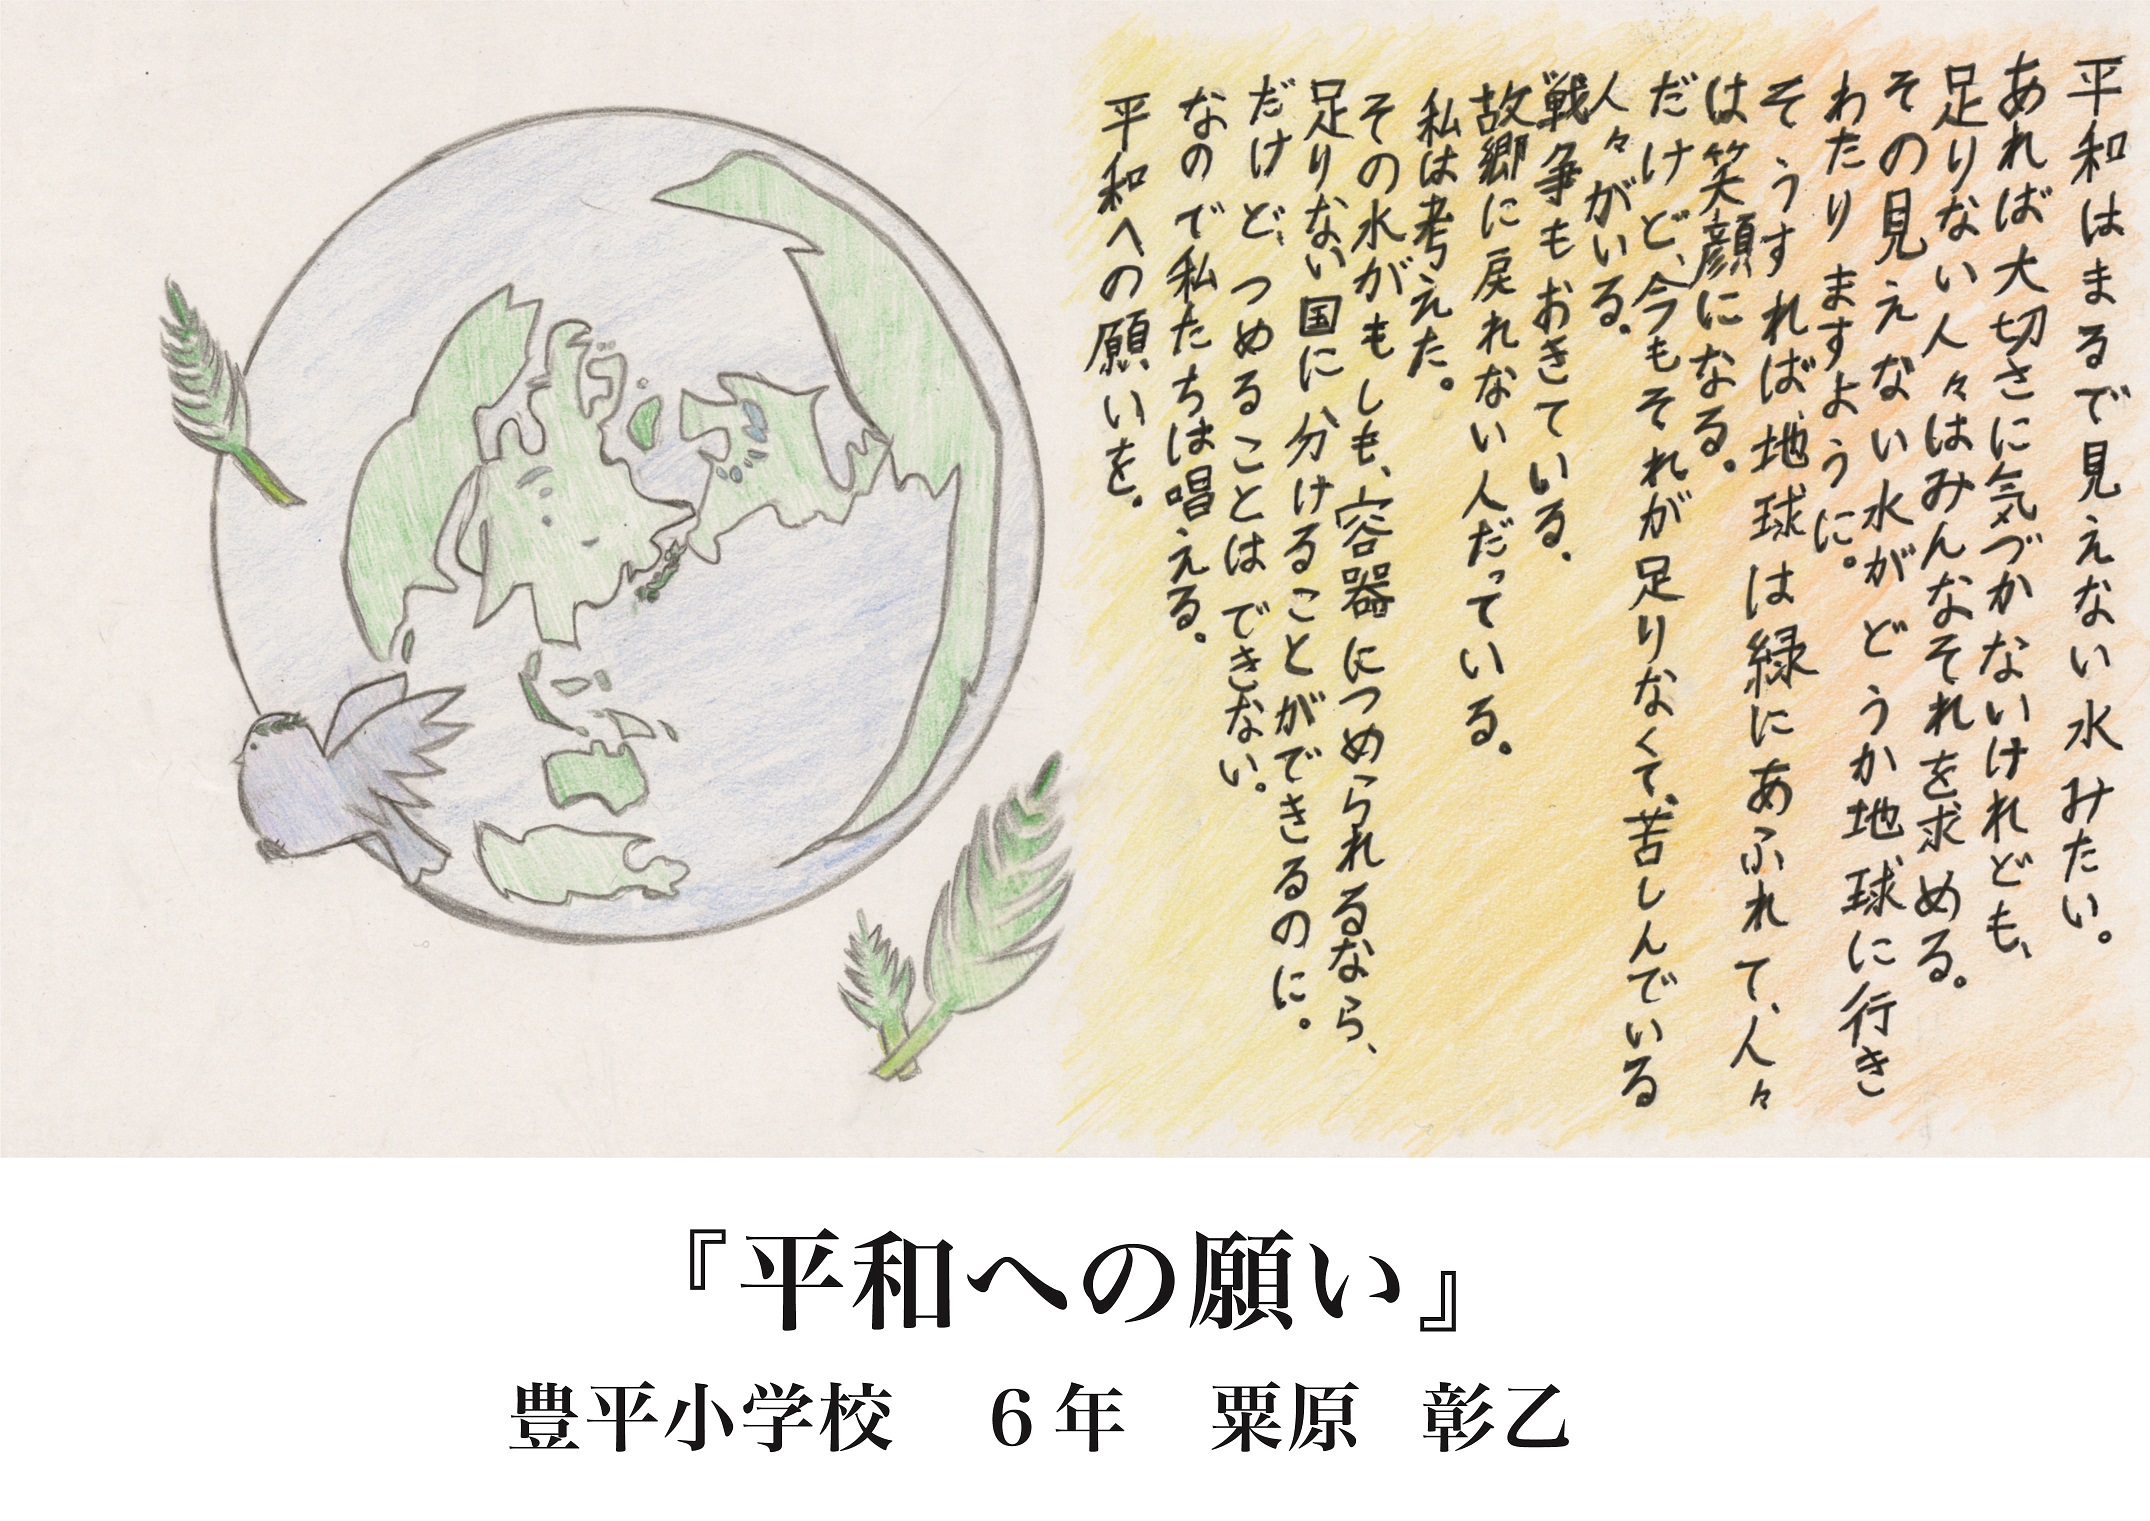 平和はまるで見えない水みたい。
あれば大切さに気づかないけれども、
足りない人々はみんなそれを求める。
その見えない水がどうか地球に行き
わたりますように。
そうすれば、地球は緑にあふれて、人々
は笑顔になる。
だけど、今もそれが足りなくて、苦しんでいる
人々がいる。
戦争もおきている。
故郷に戻れない人だっている。
私は考えた。
その水がもしも、容器につめられるなら、
足りない国に分けることができるのに。
だけど、つめることはできない。
なので私たちは唱える。
平和への願いを。
『平和への願い』
豊平小学校 6年 粟原 彰乙